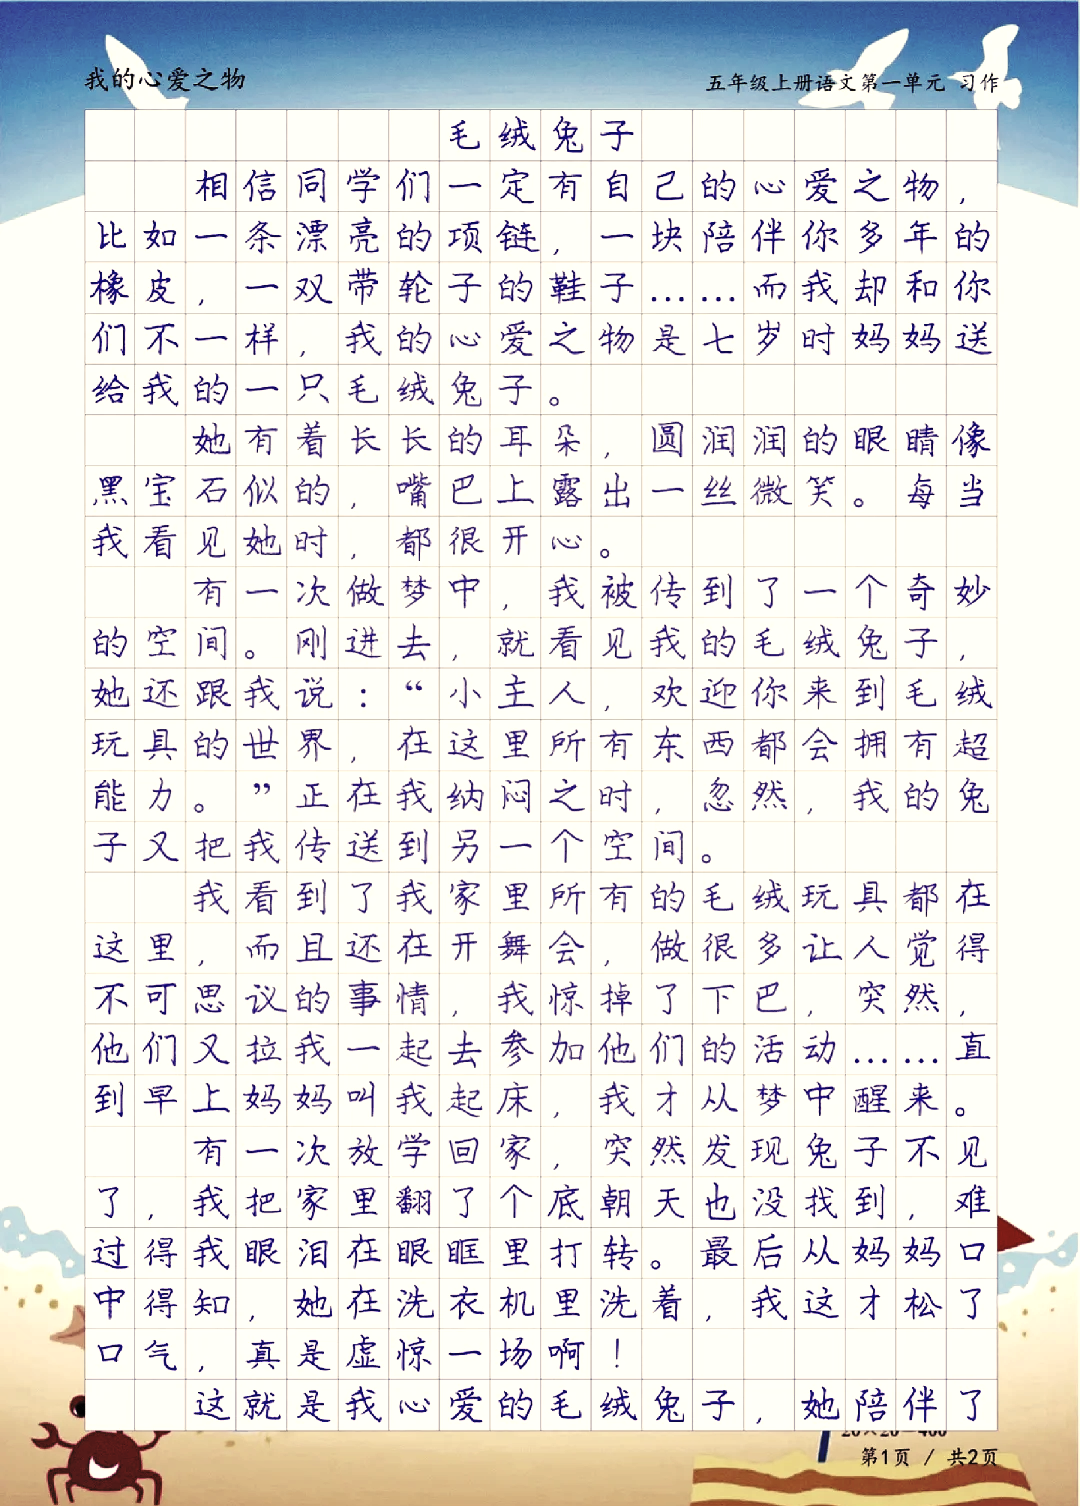 我的心爱之物
五年级上册语文第一单元 习作
毛绒兔子
相信同学们一定有自己的心爱之物，
比如一条漂亮的项链，一块陪伴你多年的
橡皮，一双带轮子的鞋子……而我却和你
们不一样，我的心爱之物是七岁时妈妈送
给我的一只毛绒兔子。
她有着长长的耳朵，圆润润的眼睛像
黑宝石似的，嘴巴上露出一丝微笑。每当
我看见她时，都很开心。
有一次做梦中，我被传到了一个奇妙
的空间。刚进去，就看见我的毛绒兔子，
她还跟我说：“小主人，欢迎你来到毛绒
玩具的世界，在这里所有东西都会拥有超
能力。”正在我纳闷之时，忽然，我的兔
子又把我传送到另一个空间。
我看到了我家里所有的毛绒玩具都在
这里，而且还在开舞会，做很多让人觉得
不可思议的事情，我惊掉了下巴，突然，
他们又拉我一起去参加他们的活动……直
到早上妈妈叫我起床，我才从梦中醒来。
有一次放学回家，突然发现兔子不见
了，我把家里翻了个底朝天也没找到，难
过得我眼泪在眼眶里打转。最后从妈妈口
中得知，她在洗衣机里洗着，我这才松了
口气，真是虚惊一场啊！
这就是我心爱的毛绒兔子，她陪伴了
第1页 / 共2页